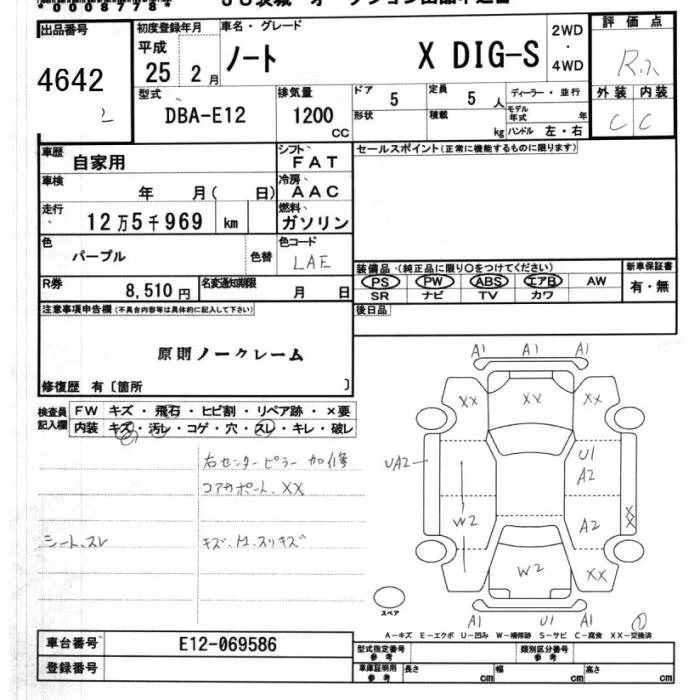 *00087784*
出品番号
4642
2
初度登録年月
平成
25 2月
車名・グレード
ノート X DIG-S
2WD
・
4WD
評価点
外装 内装
C C
型式
DBA-E12
排気量
1200
CC
ドア
5
形状
定員
5人
積載
kg
ディーラー・並行
モデル
年式 年
ハンドル 左・右
車歴
自家用
シフト
FAT
セールスポイント(正常に機能するものに限ります)
車検
年 月( 日)
冷房
AAC
走行
12万5千969 km
燃料
ガソリン
色
パープル
色替
色コード
LAE
R券
8,510円
名変通知期限
月 日
装備品、(純正品に限り○をつけてください)
PS PW ABS エアB AW
SR ナビ TV カワ
新車保証書
有・無
後日品
注意事項申告欄(不具合内容等は具体的に記入して下さい)
原則ノークレーム
修復歴 有〔箇所 〕
検査員
記入欄
FW キズ・飛石・ヒビ割・リペア跡・×要
内装 キズ・汚レ・コゲ・穴・スレ・キレ・破レ
右センターピラー 加修
コアサポート、XX
シート、スレ
A1 A1 A1
XX XX XX
UA2
U1
A2
W2
A2
XX
W2
XX
A1 U1 A1
スペア
A-キズ E-エクボ U-凹み W-補修跡 S-サビ C-腐食 XX-交換済
車台番号
E12-069586
登録番号
型式指定番号
参考
類別区分番号
参考
車庫証明用
参考
長さ cm
幅 cm
高さ cm